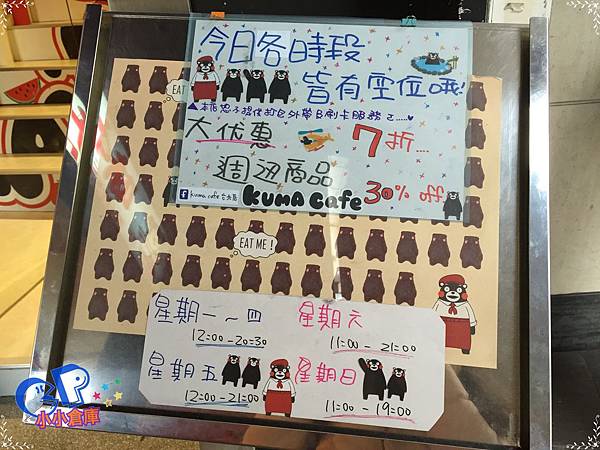 今日各時段
皆有空位哦!
EAT
▲本店恕不提供打包外帶&刷卡服務
大優惠 7折....
週边商品
30% off
f kuma cafe 台北店
KUMA Cafe
EAT ME!
星期一～四
12:00-20:30
星期六
11:00 - 21:00
星期五
12:00-21:00
星期日
11:00 - 19:00
CP
小小倉庫